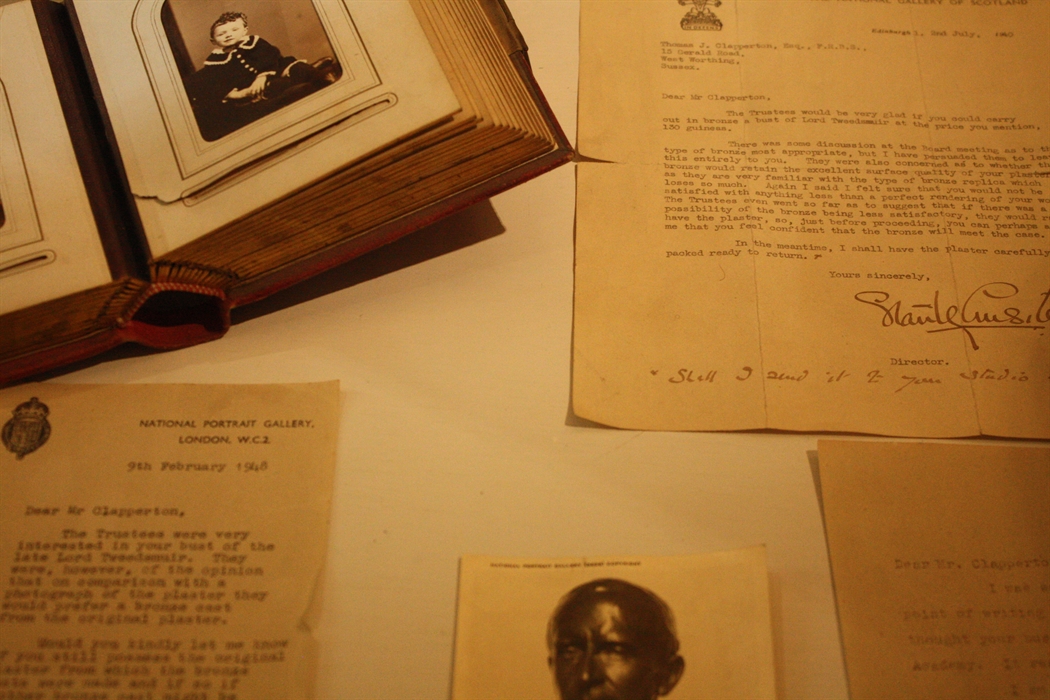 NATIONAL GALLERY OF SCOTLAND
Edinburgh 1, 2nd July,
Thomas J. Clapperton, Esq., F.R.B.S.,
15 Gerald Road,
West Worthing,
Sussex.
Dear Mr Clapperton,
The Trustees would be very glad if you could carry
out in bronze a bust of Lord Tweedsmuir at the price you mention,
130 guineas.
There was some discussion at the Board meeting as to th
type of bronze most appropriate, but I have persuaded them to lea
this entirely to you. They were also concerned as to whether th
bronze would retain the excellent surface quality of your plaster
as they are very familiar with the type of bronze replica which
loses so much. Again I said I felt sure that you would not be
satisfied with anything less than a perfect rendering of your wo
The Trustees even went so far as to suggest that if there was a
possibility of the bronze being less satisfactory, they would r
have the plaster, so, just before proceeding, you can perhaps a
me that you feel confident that the bronze will meet the case.
In the meantime, I shall have the plaster carefully
packed ready to return.
Yours sincerely,
Director.
Shall I send it to your Studio
NATIONAL PORTRAIT GALLERY,
LONDON, W.C.2.
9th February 1948
Dear Mr Clapperton,
The Trustees were very
interested in your bust of the
late Lord Tweedsmuir. They
were, however, of the opinion
that on comparison with a
photograph of the plaster they
would prefer a bronze cast
from the original plaster.
Would you kindly let me know
if you still possess the original
plaster from which the bronze
casts were made and if so if
another bronze cast might be
NATIONAL PORTRAIT GALLERY COPYRIGHT
Dear Mr. Clapperto
I was
point of writing
thought your bus
Academy. It